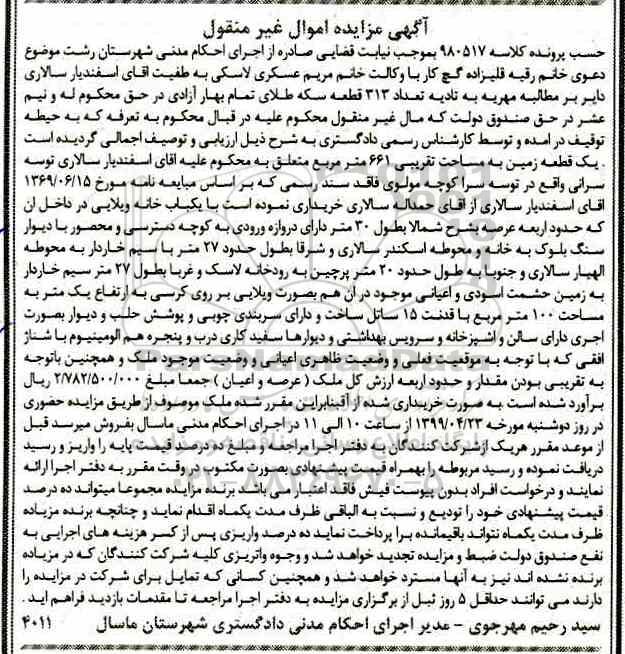 آگهی مزایده اموال غیر منقول
حسب پرونده کلاسه ۹۸۰۵۱۷ بموجب نیابت قضایی صادره از اجرای احکام مدنی شهرستان رشت موضوع
دعوی خانم رقیه قلیزاده گچ کار با وکالت خانم مریم عسکری لاسکی به طفیت اقای اسفندیار سالاری
دایر بر مطالبه مهریه به تادیه تعداد ۳۱۳ قطعه سکه طلای تمام بهار آزادی در حق محکوم له و نیم
عشر در حق صندوق دولت که مال غیر منقول محکوم علیه در قبال محکوم به تعرفه که به حیطه
توقیف در امده و توسط کارشناس رسمی دادگستری به شرح ذیل ارزیابی و توصیف اجمالی گردیده است
. یک قطعه زمین به مساحت تقریبی ۶۶۱ متر مربع متعلق به محکوم علیه اقای اسفندیار سالاری توسه
سرانی واقع در توسه سرا کوچه مولوی فاقد سند رسمی که بر اساس مبایعه نامه مورخ ۱۳۶۹/۰۶/۱۵
اقای اسفندیار سالاری از اقای حمداله سالاری خریداری نموده است با یکباب خانه ویلایی در داخل ان
که حدود اربعه عرصه بشرح شمالا بطول ۳۰ متر دارای دروازه ورودی به کوچه دسترسی و محصور با دیوار
سنگ بلوک به خانه و محوطه اسکندر سالاری و شرقا بطول حدود ۲۷ متر با سیم خاردار به محوطه
الهیار سالاری و جنوبا به طول حدود ۲۰ متر پرچین به رودخانه لاسک و غربا بطول ۲۷ متر سیم خاردار
به زمین حشمت اسودی و اعیانی موجود در ان هم بصورت ویلایی بر روی کرسی به ارتفاع یک متر به
مساحت ۱۰۰ متر مربع با قدنت ۱۵ سائل ساخت و دارای سربندی چوبی و پوشش حلب و دیوار بصورت
اجری دارای سالن و اشپزخانه و سرویس بهداشتی و دیوارها سفید کاری درب و پنجره هم الومینیوم با شناژ
افقی که با توجه به موقعیت فعلی و وضعیت ظاهری اعیانی و وضعیت موجود ملک و همچنین باتوجه
به تقریبی بودن مقدار و حدود اربعه ارزش کل ملک ( عرصه و اعیان ) جمعا مبلغ ۲/۷۸۲/۵۰۰/۰۰۰ ریال
برآورد شده است .به صورت خریداری شده از آقبنابراین مقرر شده ملک موصوف از طریق مزایده حضوری
در روز دوشنبه مورخه ۱۳۹۹/۰۴/۲۳ از ساعت ۱۰ الی ۱۱ در اجرای احکام مدنی ماسال بفروش میرسد قبل
از موعد مقرر هریک از شرکت کنندگان به دفتر اجرا مراجعه و مبلغ ده درصد قیمت پایه را واریز و رسید
دریافت نموده و رسید مربوطه را بهمراه قیمت پیشنهادی بصورت مکتوب در وقت مقرر به دفتر اجرا ارائه
نمایند و درخواست افراد بدون پیوست فیش فاقد اعتبار می باشد برنده مزایده مجموعا میتواند ده درصد
قیمت پیشنهادی خود را تودیع و نسبت به الباقی ظرف مدت یکماه اقدام نماید و چنانچه برنده مزیاده
ظرف مدت یکماه نتواند باقیمانده برا پرداخت نماید ده درصد واریزی پس از کسر هزینه های اجرایی به
نفع صندوق دولت ضبط و مزایده تجدید خواهد شد و وجوه واتریزی کلیه شرکت کنندگان که در مزیاده
برنده نشده اند نیز به آنها مسترد خواهد شد و همچنین کسانی که تمایل برای شرکت در مزایده را
دارند می توانند حداقل ۵ روز ثبل از برگزاری مزایده به دفتر اجرا مراجعه تا مقدمات بازدید فراهم اید .
سید رحیم مهرجوی - مدیر اجرای احکام مدنی دادگستری شهرستان ماسال ۴۰۱۱